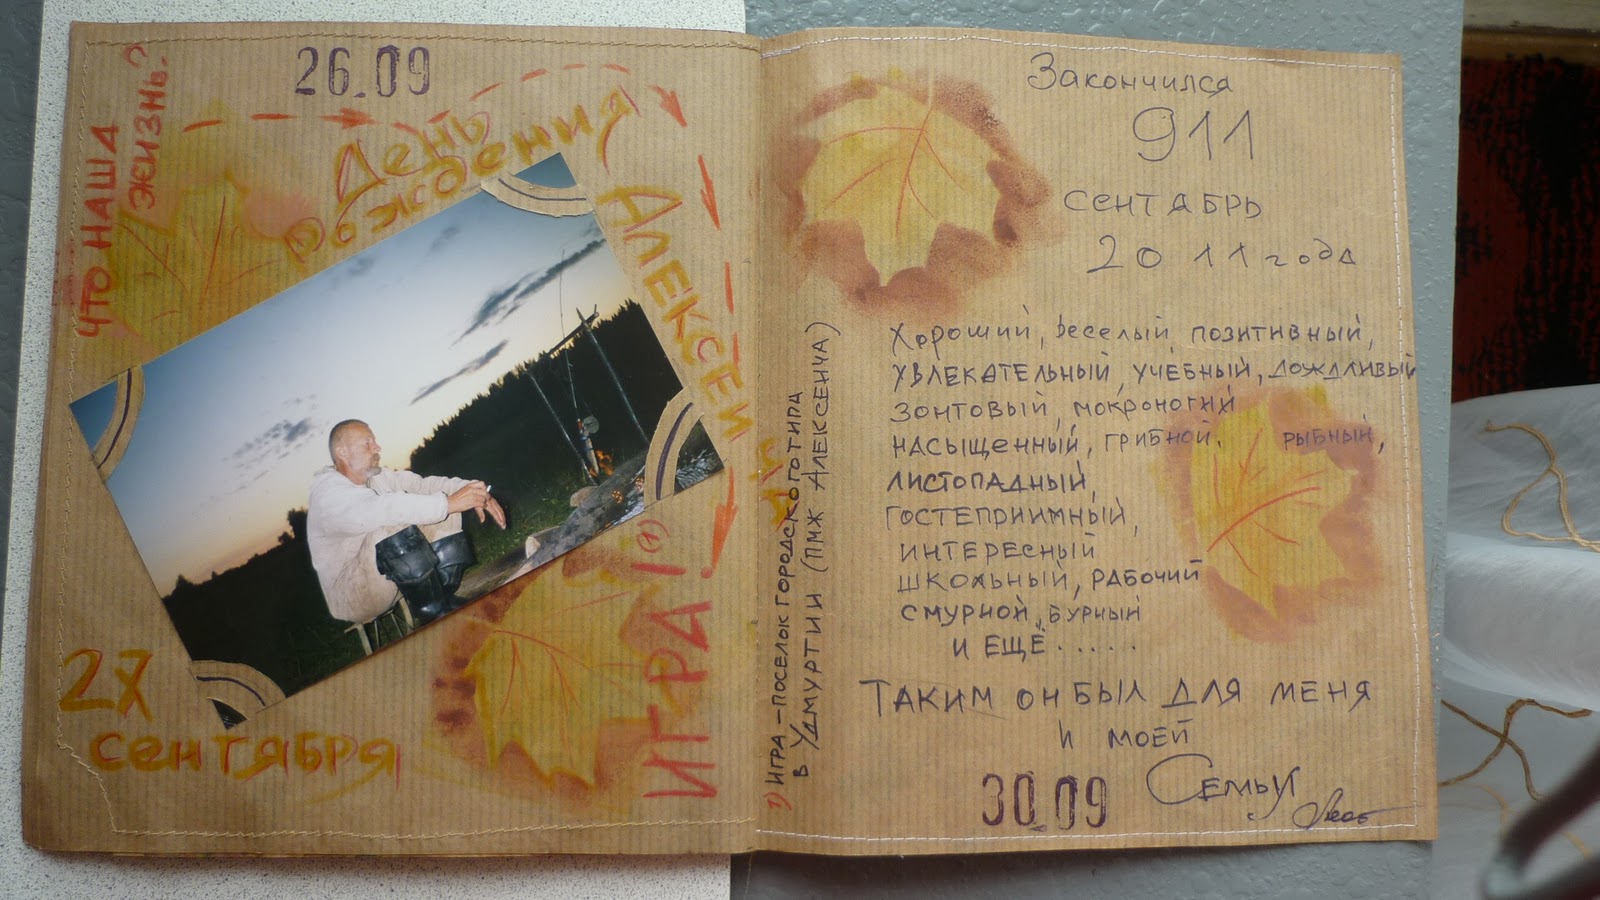 26.09
ЧТО НАША
ЖИЗНЬ?
День
Рождения
АЛЕКСЕИЧ
ИГРА! 1)
27
сентября
1) ИГРА – ПОСЕЛОК ГОРОДСКОГО ТИПА
в УДМУРТИИ (ПМЖ АЛЕКСЕИЧА)
Закончился
911
СЕНТЯБРЬ
2011 года
Хороший, веселый, позитивный,
УВЛЕКАТЕЛЬНЫЙ, УЧЕБНЫЙ, ДОЖДЛИВЫЙ
ЗОНТОВЫЙ, МОКРОНОГИЙ
НАСЫЩЕННЫЙ, ГРИБНОЙ, РЫБНЫЙ,
ЛИСТОПАДНЫЙ,
ГОСТЕПРИИМНЫЙ,
ИНТЕРЕСНЫЙ
ШКОЛЬНЫЙ, РАБОЧИЙ
СМУРНОЙ, БУРНЫЙ
И ЕЩЁ.....
ТАКИМ ОН БЫЛ ДЛЯ МЕНЯ
И МОЕЙ
СЕМЬИ
30.09